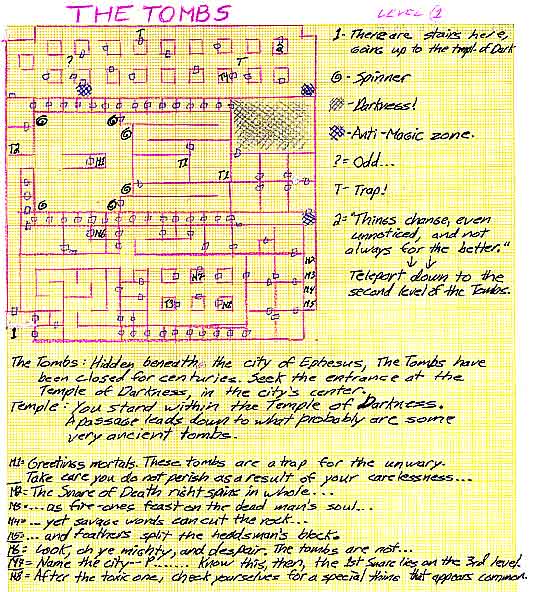 THE TOMBS
LEVEL (1
1- There are stairs here,
going up to the templ. of Dark
- Spinner
- Darkness!
- Anti-Magic zone.
? = Odd...
T - Trap!
2= "Things change, even
unnoticed, and not
always for the better."
↓ ↓
Teleport down to the
second level of the Tombs.
T
2
?
T
T4
T2
M1
T3
T1
M6
M2
M3
M4
M5
M7
M8
1
The Tombs: Hidden beneath the city of Ephesus, The Tombs have
been closed for centuries. Seek the entrance at the
Temple of Darkness, in the city's center.
Temple: You stand within the Temple of Darkness.
A passage leads down to what probably are some
very ancient tombs.
M1= Greetings mortals. These tombs are a trap for the unwary.
Take care you do not perish as a result of your carelessness...
M2= The Snare of Death right spins in whole...
M3= ... as fire-ones feast on the dead man's soul...
M4= ... yet savage words can cut the rock...
M5= ... and feathers split the headsman's block.
M6= Look, oh ye mighty, and despair. The tombs are not...
M7= Name the city-- P....... Know this, then, the 1st Snare lies on the 3rd level
M8= After the toxic one, check yourselves for a special thing that appears common.